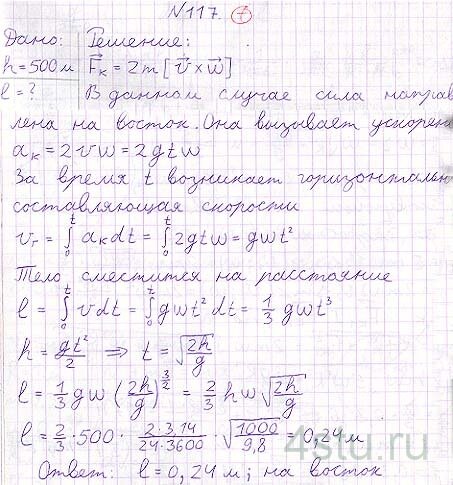 N117. 7
Дано: Решение:
h = 500 м F⃗к = 2m [v⃗ × w⃗]
l = ? В данном случае сила направ
лена на восток. Она вызывает ускорени
aк = 2vw = 2gtw
За время t возникает горизонтальн
составляющая скорости
vг = ∫₀ᵗ aк dt = ∫₀ᵗ 2gtw = gwt²
Тело сместится на расстояние
l = ∫₀ᵗ vdt = ∫₀ᵗ gwt² dt = 1/3 gwt³
h = gt²/2 ⇒ t = √(2h/g)
l = 1/3 gw (2h/g)^(3/2) = 2/3 hw √(2h/g)
l = 2/3 · 500 · (2·3,14)/(24·3600) · √(1000/9,8) = 0,24 м
4stu.ru
Ответ: l = 0,24 м; на восток